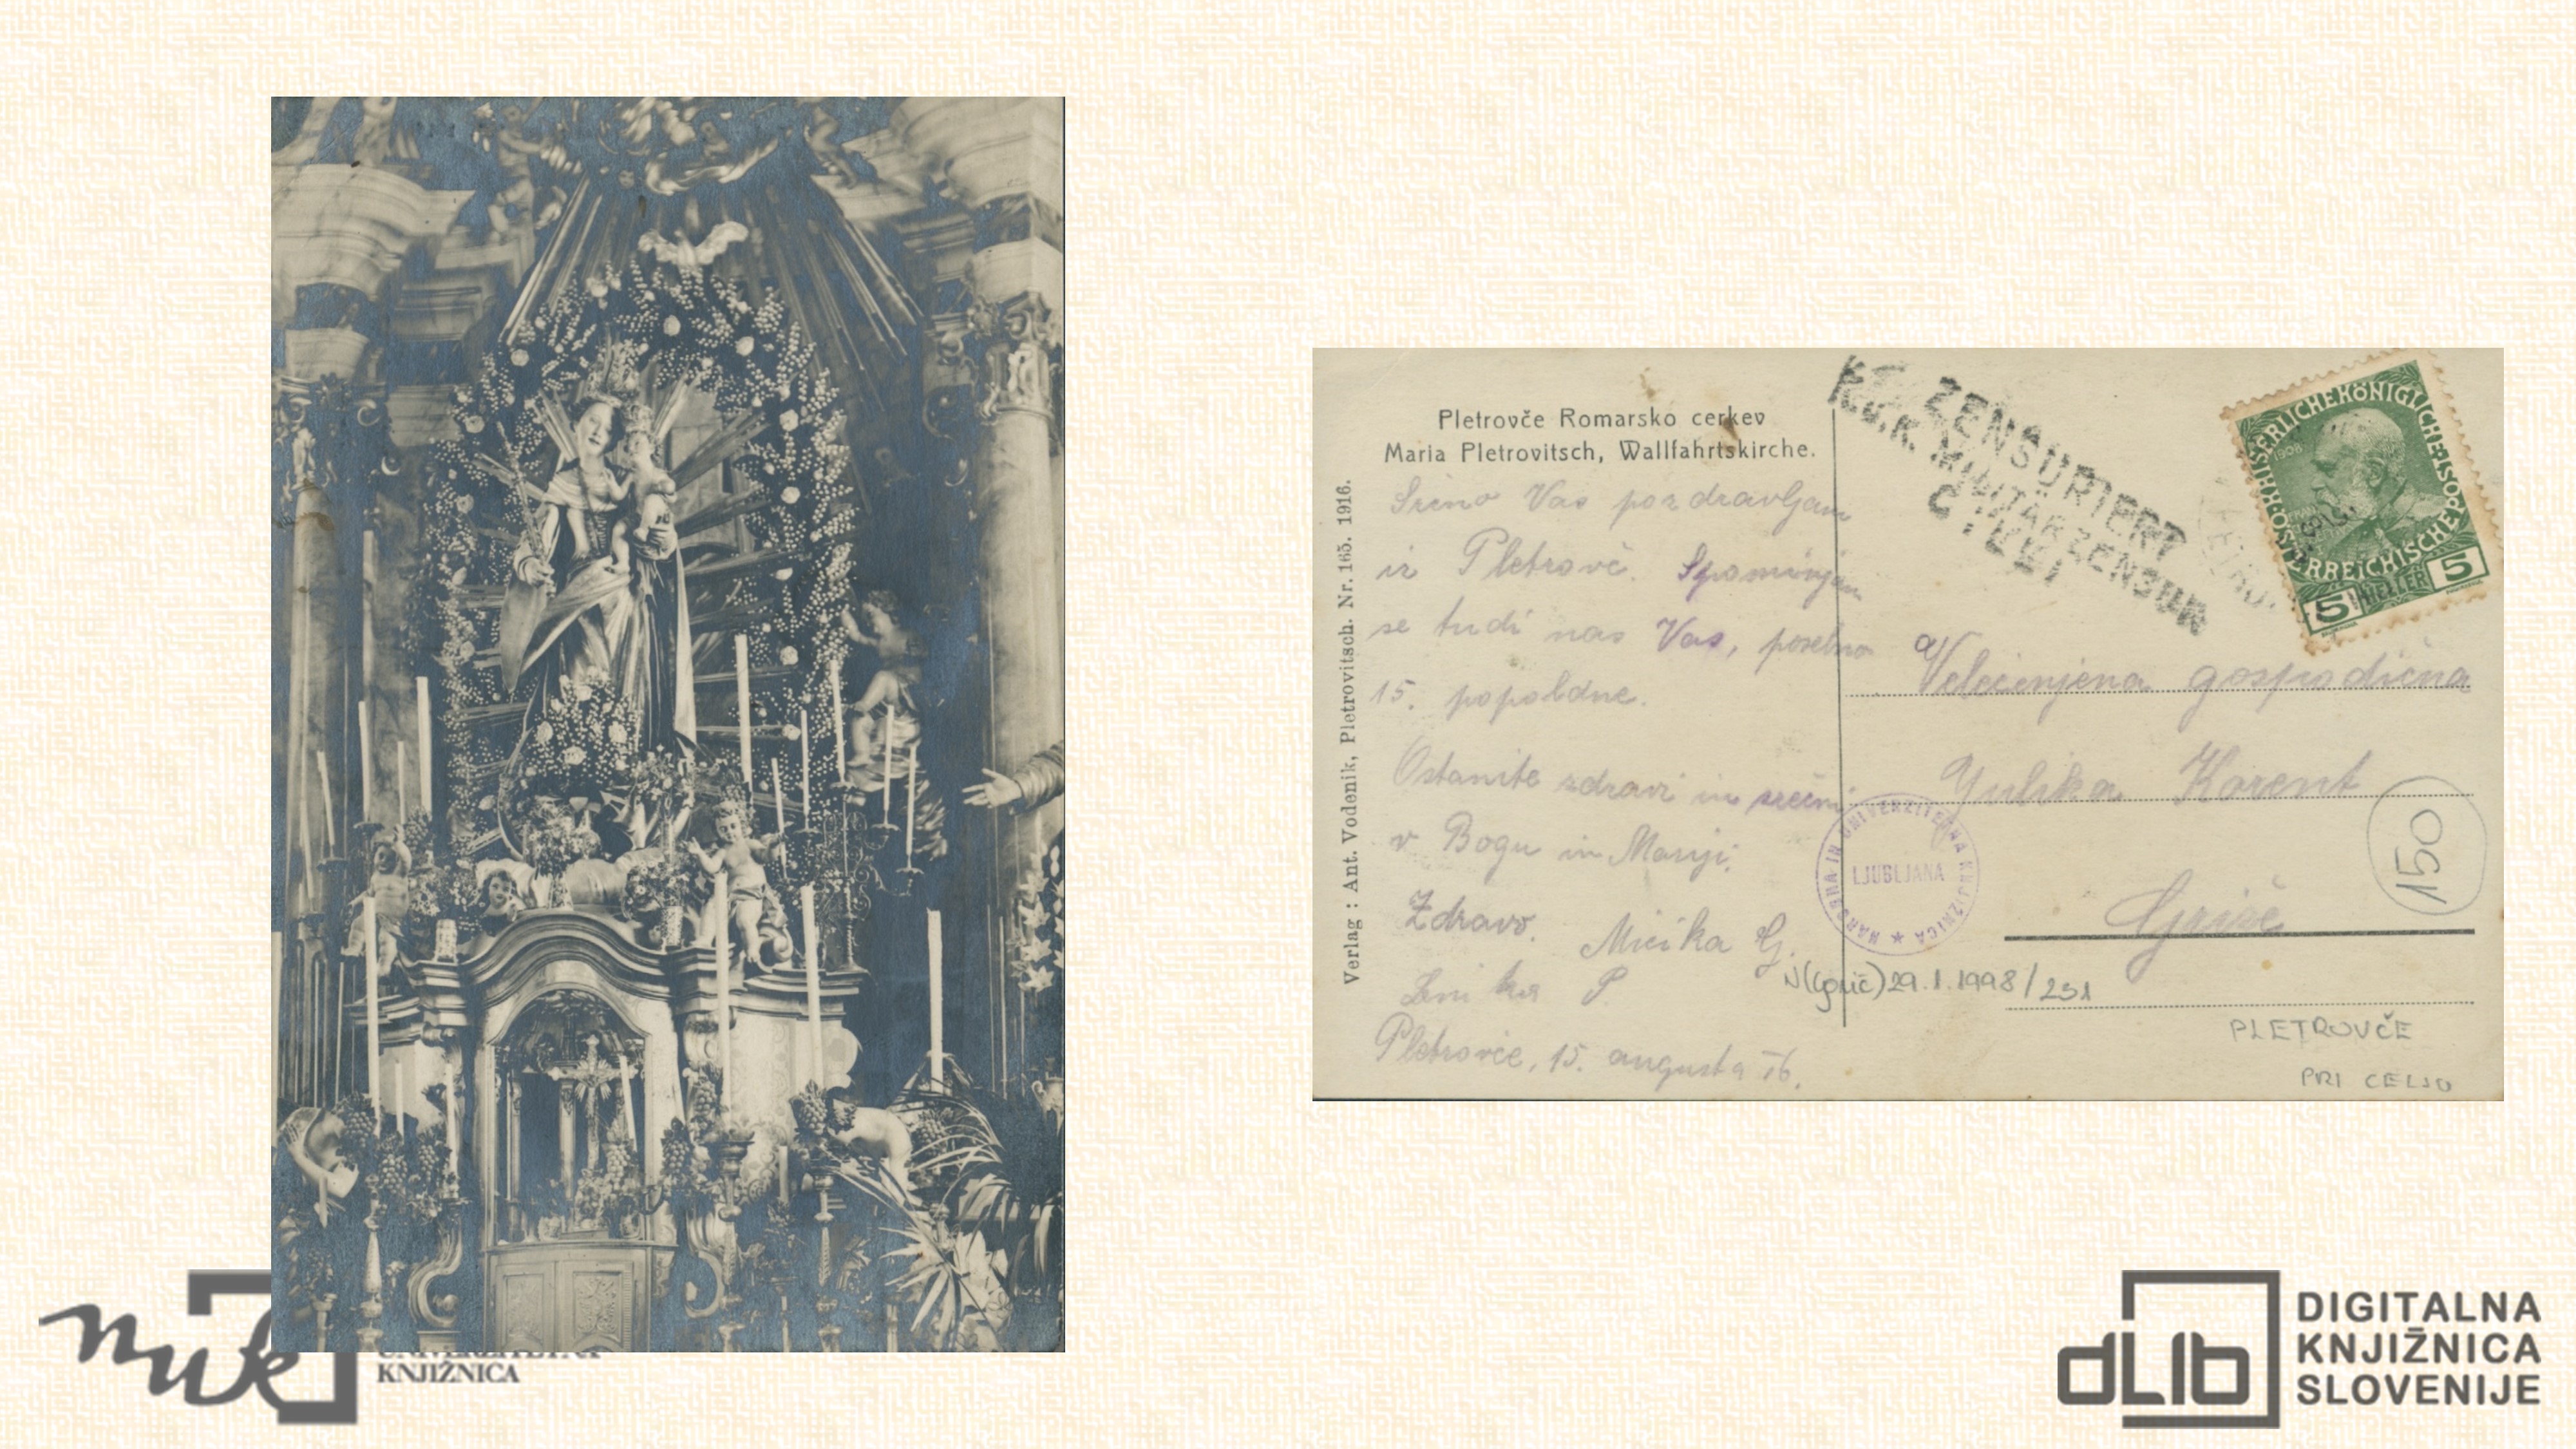 Pletrovče Romarsko cerkev
Maria Pletrovitsch, Wallfahrtskirche.
Verlag : Ant. Vodenik, Pletrovitsch. Nr. 165. 1916.
Srčno Vas pozdravljam
iz Pletrovč. Spominjam
se tudi nas Vas, posebno
15. popoldne.
Ostanite zdravi in srečni
v Bogu in Mariji.
Zdravo. Micika G.
P.
Pletrovče, 15. augusta 16.
ZENSURIERT
K.u.K. MILITÄRZENSUR
CILLI
KAISERLICHE KÖNIGLICHE ÖSTERREICHISCHE POST
1908
5 HELLER 5
Velecenjena gospodična
Julika Korent
Griže
150
NARODNA IN UNIVERZITETNA KNJIŽNICA ★
LJUBLJANA
29.1.1998/251
PLETROVČE
PRI CELJU
nuk
UNIVERZITETNA
KNJIŽNICA
dLib
DIGITALNA
KNJIŽNICA
SLOVENIJE